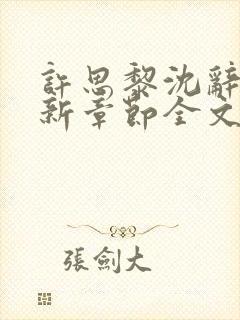 許思黎沈辭
新章節全文
張劍大